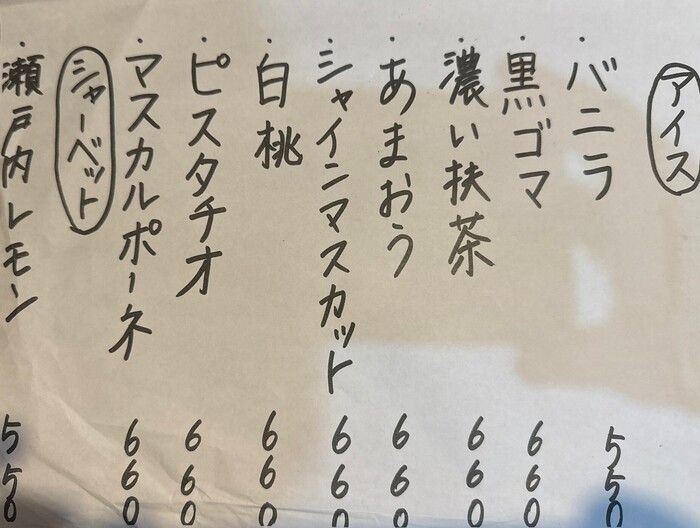 アイス
・バニラ 550
・黒ゴマ 660
・濃い抹茶 660
・あまおう 660
・シャインマスカット 660
・白桃 660
・ピスタチオ 660
・マスカルポーネ 660
シャーベット
・瀬戸内レモン 550